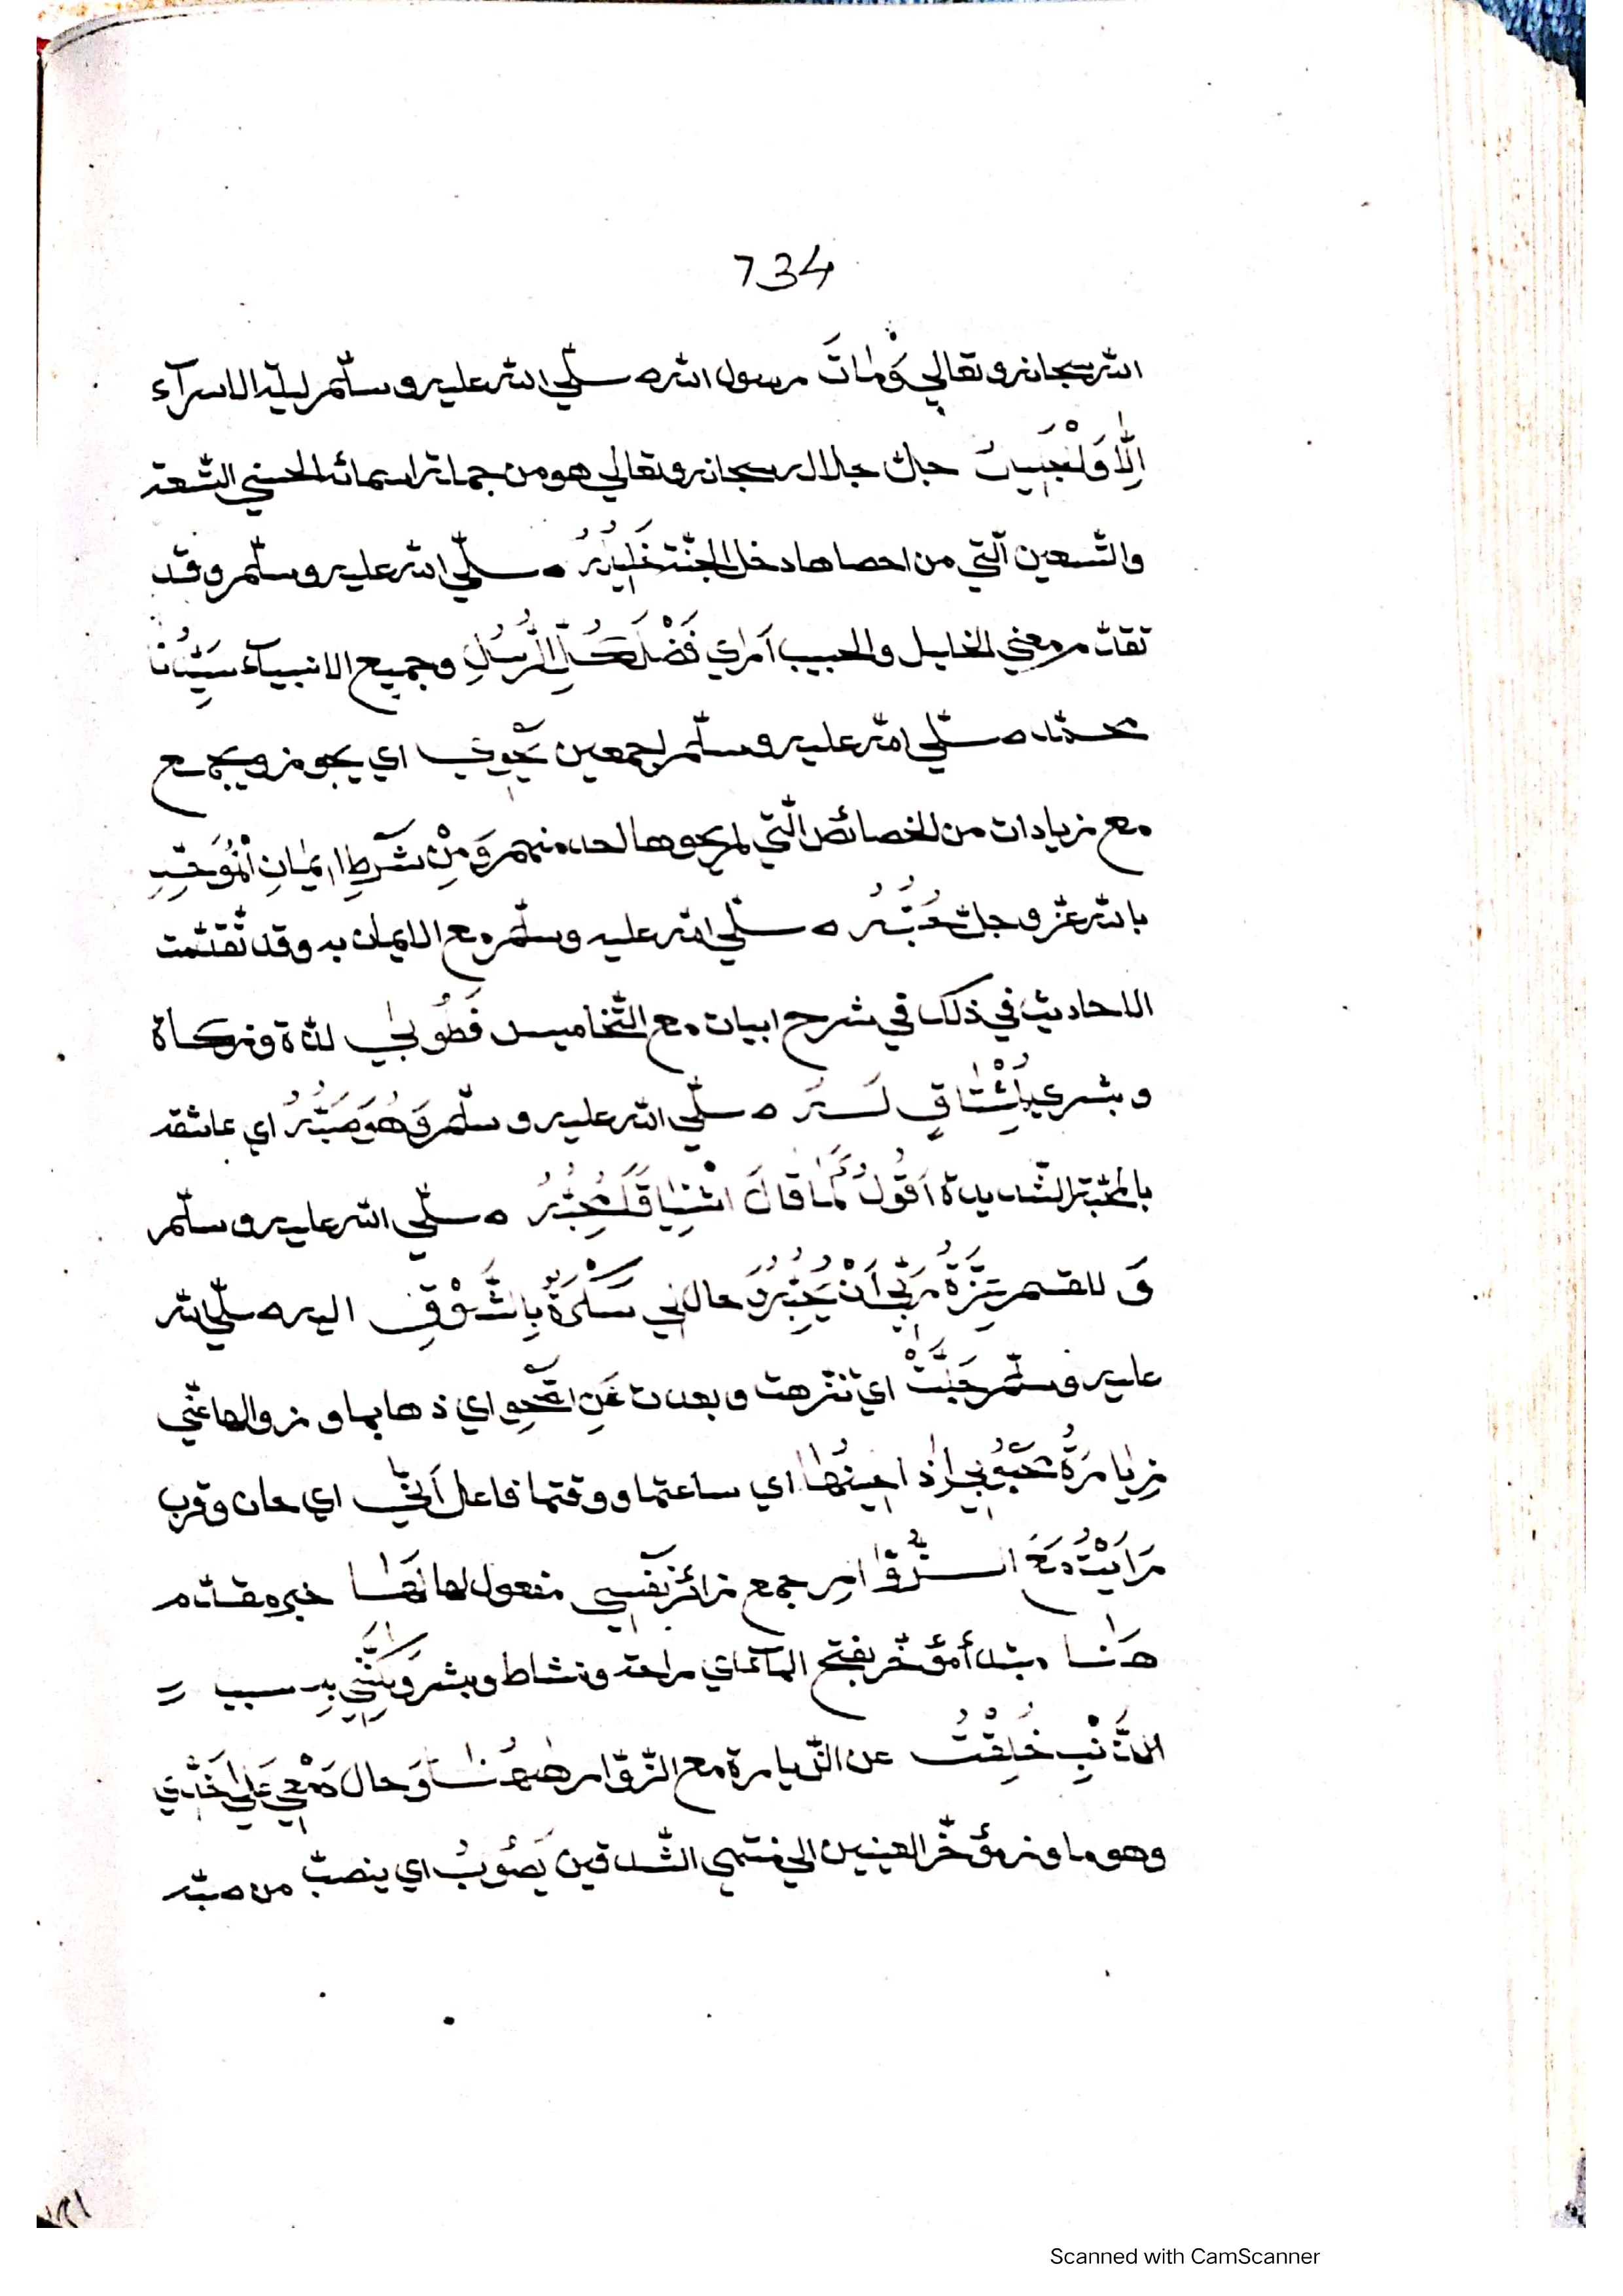 734
الله سبحانه وتعالى وَمَاتَ رسول الله صلّي الله عليه وسلّم ليلة الاسرآء
اِلَّا وَلْجَيبُ جلّ جلاله سبحانه وتعالي هو من جملة اسمائه الحسني التّسعة
والتّسعين الّتي من احصاها دخل الجنّة خَلِيلُهُ صلّي الله عليه وسلّم وقد
تقدّم معني الخليل والحبيب اَرَاي فَضْلَ كُلِّ الرُّسُلِ وجميع الانبيآء سَيِّدُنَا
محمّد صلّي الله عليه وسلّم اجمعين يَحْوِي اي يحوز ويجمع
مع زيادات من الخصائص الّتي لم يحوها احد منهم وَمِنْ شَرْطِ اِيمَانِ الْمُوَحِّدِ
بالله عزّ وجلّ حُبُّهُ صلّي الله عليه وسلّم مع الايمان به وقد تقدّمت
الاحاديث في ذلك في شرح ابيات مع التّخاميس فَطُوبَي لذّة وزكاة
وبشري لِمُشْتَاقٍ لَهُ صلّي الله عليه وسلّم وَهُوَ صَبُّهُ اي عاشقه
بالمحبّة الشّديدة اَقُولُ كَمَا قَالَ اشْتِيَاقًا مُحِبُّهُ صلّي الله عليه وسلّم
وَ للقسم عِزَّةُ رَبِّي اَنْ يُحِبُّهُ حال لي سَكْرَةٌ بِالشَّوْقِ اليه صلّي الله
عليه وسلّم جَلَّتْ اي تنزهت وبعدت عَنِ الصَّحْوِ اي ذهابها وزوالها عنّي
زِيَارَةُ مَحْبُوبِي اِذَا حِينُهَا اي ساعتها ووقتها فاعل اَنَي اي حان وقرب
رَاَيْتُ مَعَ الزُّوَّارِ جمع زائر نَفْسِي مفعول لها لَهَا خبر مقدّم
هَنَا مبتدأ مؤخّر بفتح الهآء اي راحة ونشاط وبشر وَلَكِنَّنِي بِ سبب =
الذَّنْبِ خُلِّفْتُ عن الزّيارة مع الزّوّار هٰهُنَا وَ حال دَمْعِي عَلَي خَدِّي
وهو ما من مؤخّر العينين الي منتهي الشّدقين يَصُوبُ اي ينصبّ من صبّه
Scanned with CamScanner